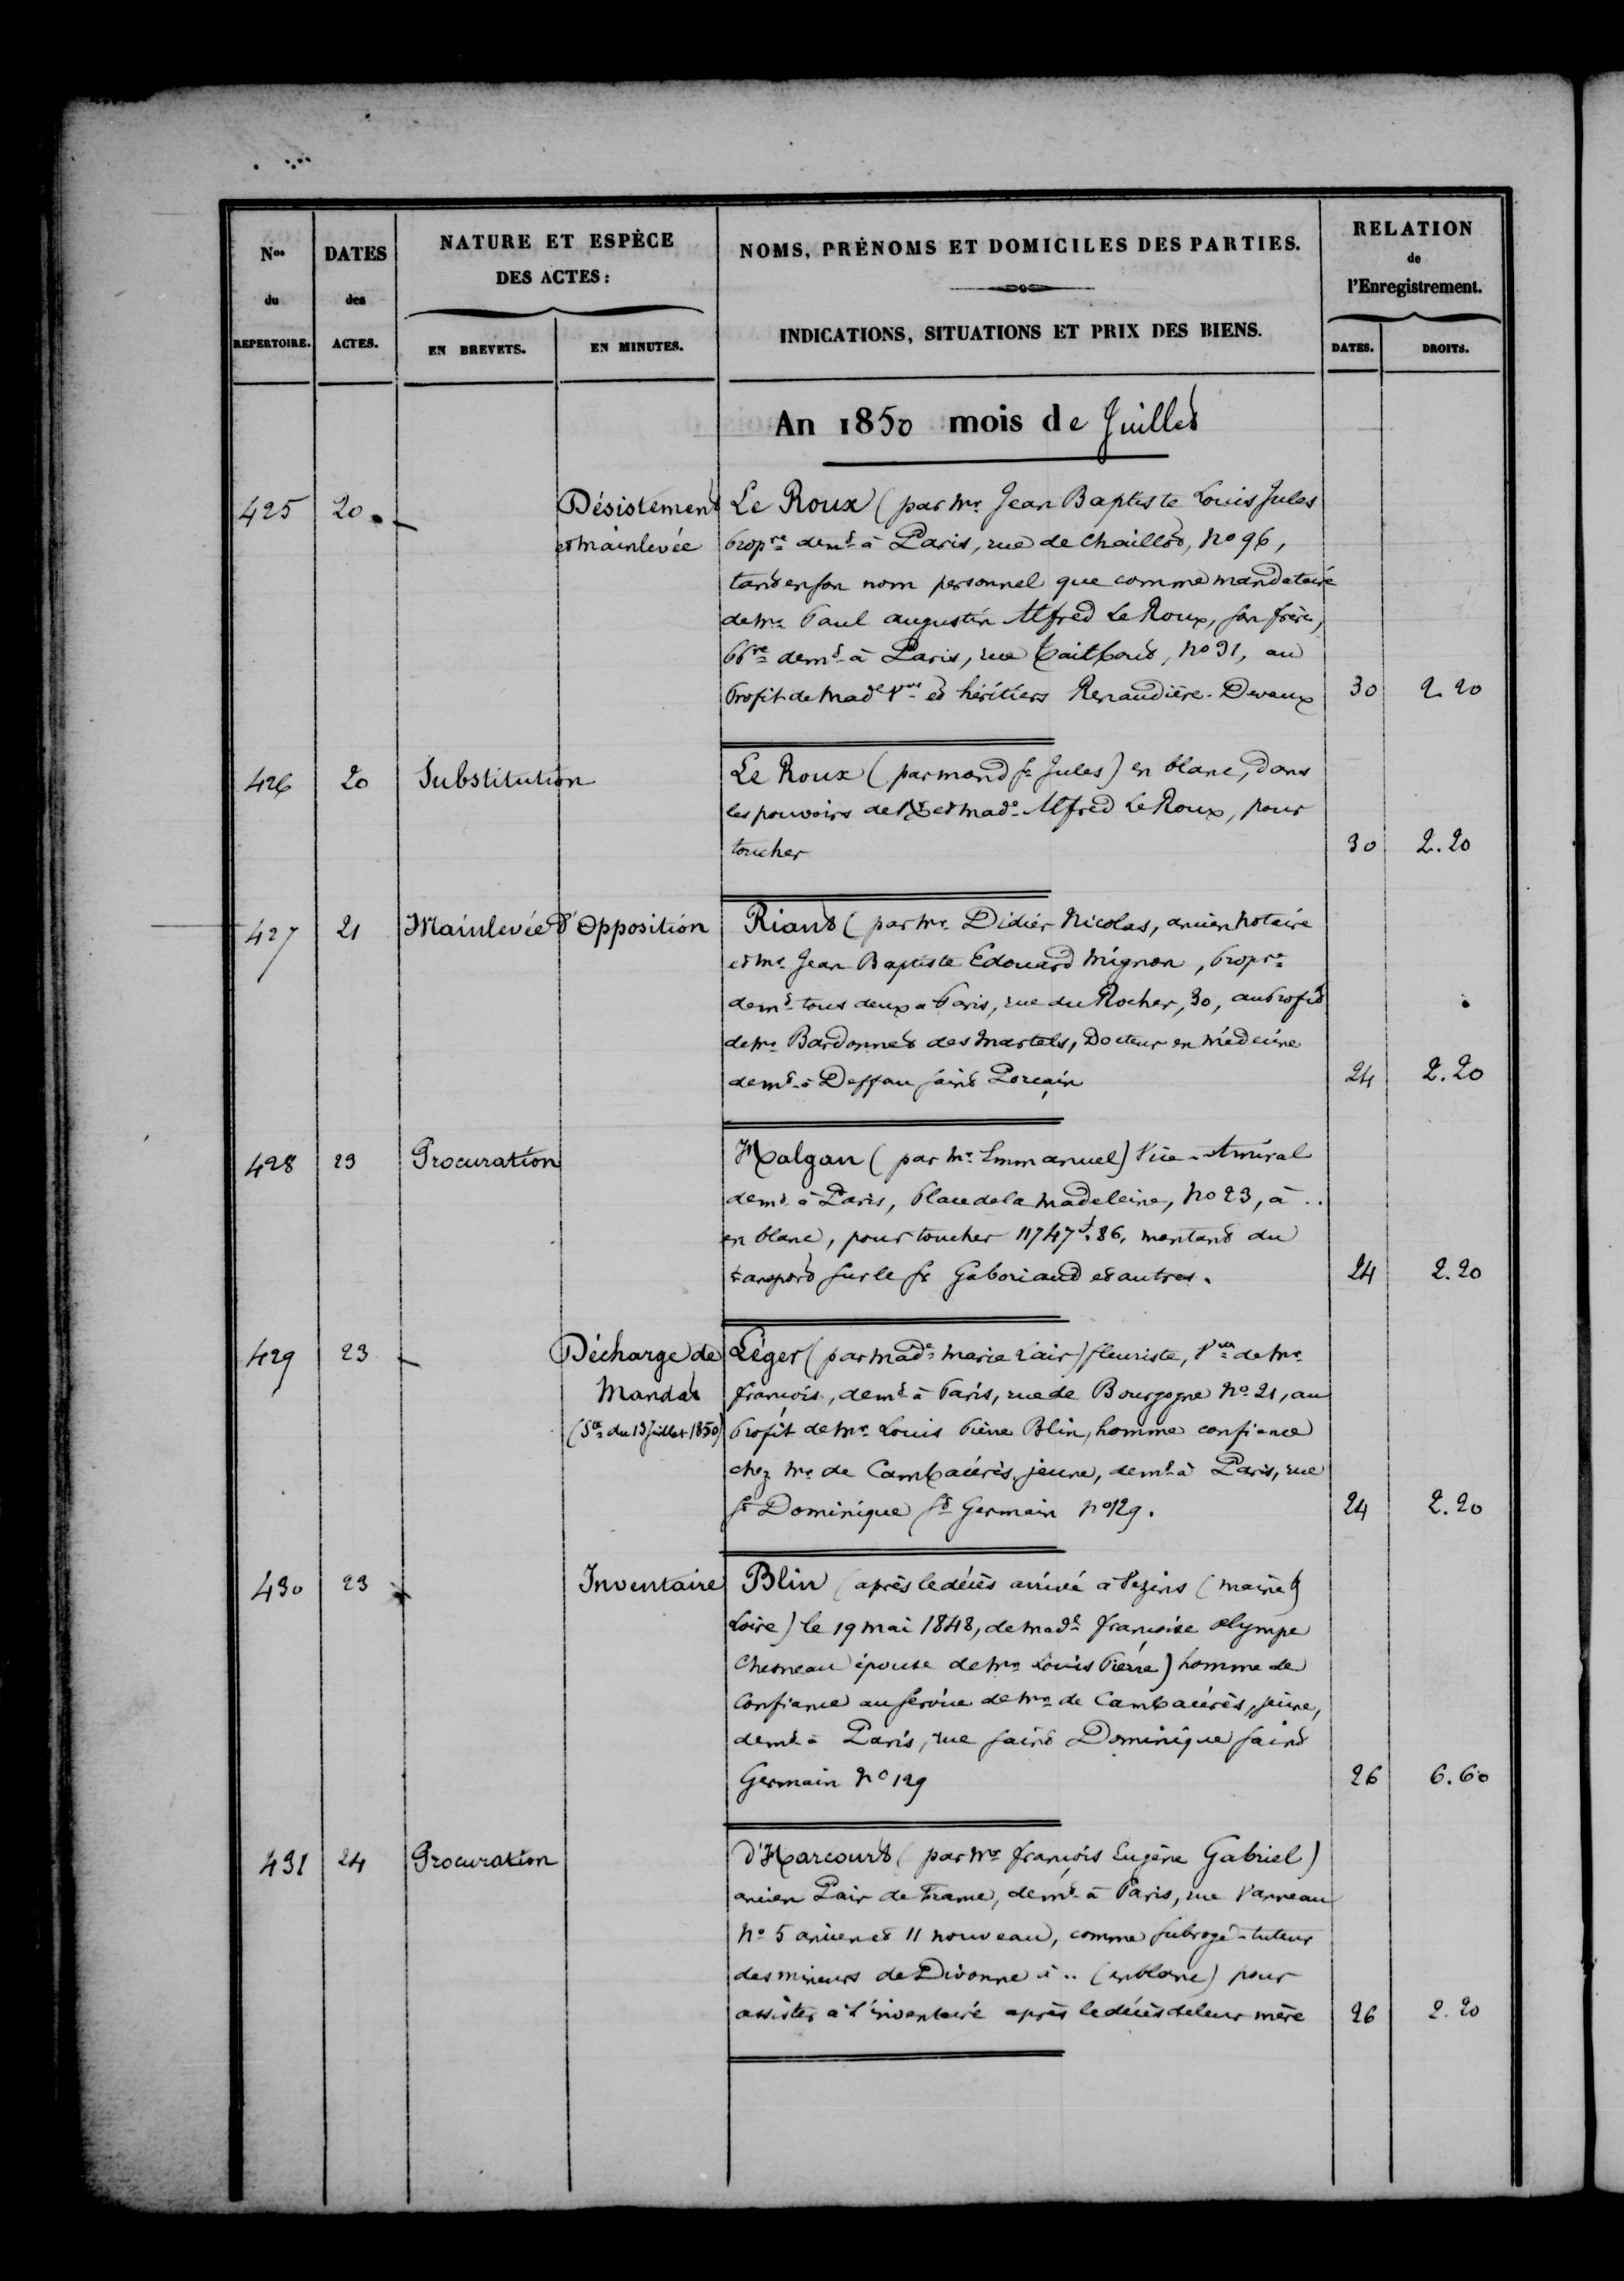 Nos du REPERTOIRE.
DATES des ACTES.
NATURE ET ESPÈCE DES ACTES:
EN BREVETS.
EN MINUTES.
NOMS, PRÉNOMS ET DOMICILES DES PARTIES.
INDICATIONS, SITUATIONS ET PRIX DES BIENS.
RELATION de l'Enregistrement.
DATES.
DROITS.
An 1850 mois de Juillet
425 20 — Désistement Le Roux (par Mr. Jean Baptiste Louis Jules
et mainlevée propre demt à Paris, rue de Chaillot, no 96,
tant en son nom personnel que comme mandataire
de Mr Paul Augustin Alfred Le Roux, son frère,
ppre demt à Paris, rue Taitbout, no 31, au
profit de Made Vve et héritiers Renaudière-Devaux 30 2.20
426 20 Substitution Le Roux (par mond sr Jules) en blanc, dans
les pouvoirs de Mr et Made Alfred Le Roux, pour
toucher 30 2.20
427 21 Mainlevée d'Opposition Riant (par Mr. Didier Nicolas, ancien Notaire
et Mr. Jean Baptiste Edouard Mignon, propre
demt tous deux à Paris, rue du Rocher, 30, au profit
de Mr. Bardonnet des Martels, Docteur en médecine
demt à Deffau saint Pourçain 24 2.20
428 23 Procuration Halgan (par Mr. Emmanuel) Vice-Amiral
demt à Paris, Place de la Madeleine, no 23, à ..
en blanc, pour toucher 11747f.86. montant du
transport sur le sr Gaboriaud et autres. 24 2.20
429 23 — Décharge de Léger (par Made Marie Lair) fleuriste, Vve de Mr.
Mandat françois, demt à Paris, rue de Bourgogne No 21, au
(Ste du 13 Juillet 1850) profit de Mr. Louis Pierre Blin, homme confiance
chez Mr. de Cambacérès, jeune, demt à Paris, rue
St Dominique St Germain no 129. 24 2.20
430 23 Inventaire Blin (après le décès arrivé à Vezins (Maine &
Loire) le 19 mai 1848, de made françoise olympe
Chesneau épouse de Mr. Louis Pierre) homme de
confiance au service de Mr. de Cambacérès, jeune,
demt à Paris, rue saint Dominique saint
Germain No 129 26 6.60
431 24 Procuration D'Harcourt (par Mr. françois Eugène Gabriel)
ancien Pair de France, demt à Paris, rue Vanneau
no 5 ancien et 11 nouveau, comme subrogé-tuteur
des mineurs de Divonne à .. (en blanc) pour
assister à l'inventaire après le décès de leur mère 26 2.20